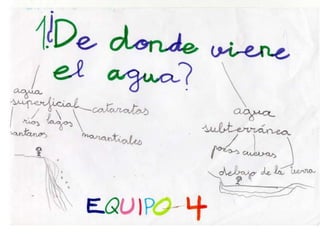 1¿De donde viene
el agua?
agua
superficial
cataratas
rios lagos
pantanos
marantiales
agua
subterránea
pozos cuevas
debajo de la tierra
EQUIPO-4